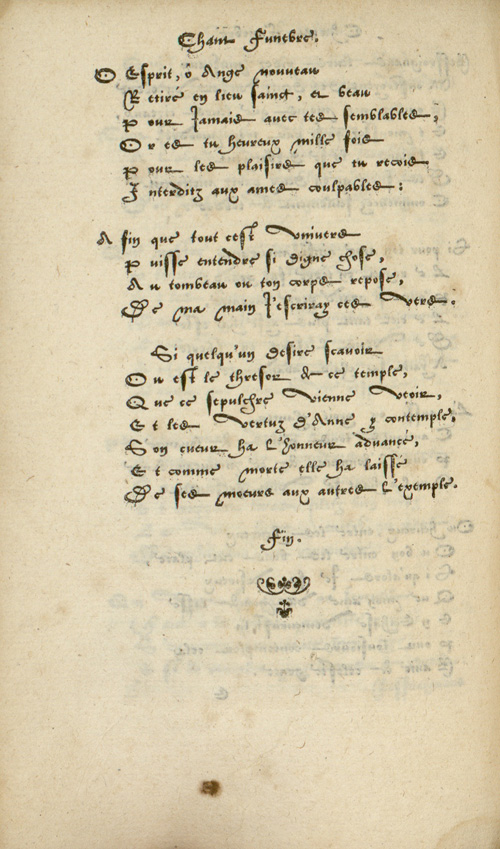 Chant Funebre.
O Esprit, ô Ange nouveau
Retiré en lieu sainct, et beau
Pour Jamais avec tes semblables,
Or es tu heureux mille fois
Pour les plaisirs que tu recois
Interditz aux ames coulpables:
Afin que tout cest univers
Puisse entendre si digne chose,
Au tombeau ou ton corps repose,
De ma main J'escriray ces vers.
Si quelqu'un desire scavoir
Ou est le thresor de ce temple,
Que ce sepulchre vienne veoir,
Et les vertuz d'Anne y contemple,
Son cueur ha l'honneur advancé,
Et comme morte elle ha laissé
De ses moeurs aux autres l'exemple.
Fin.